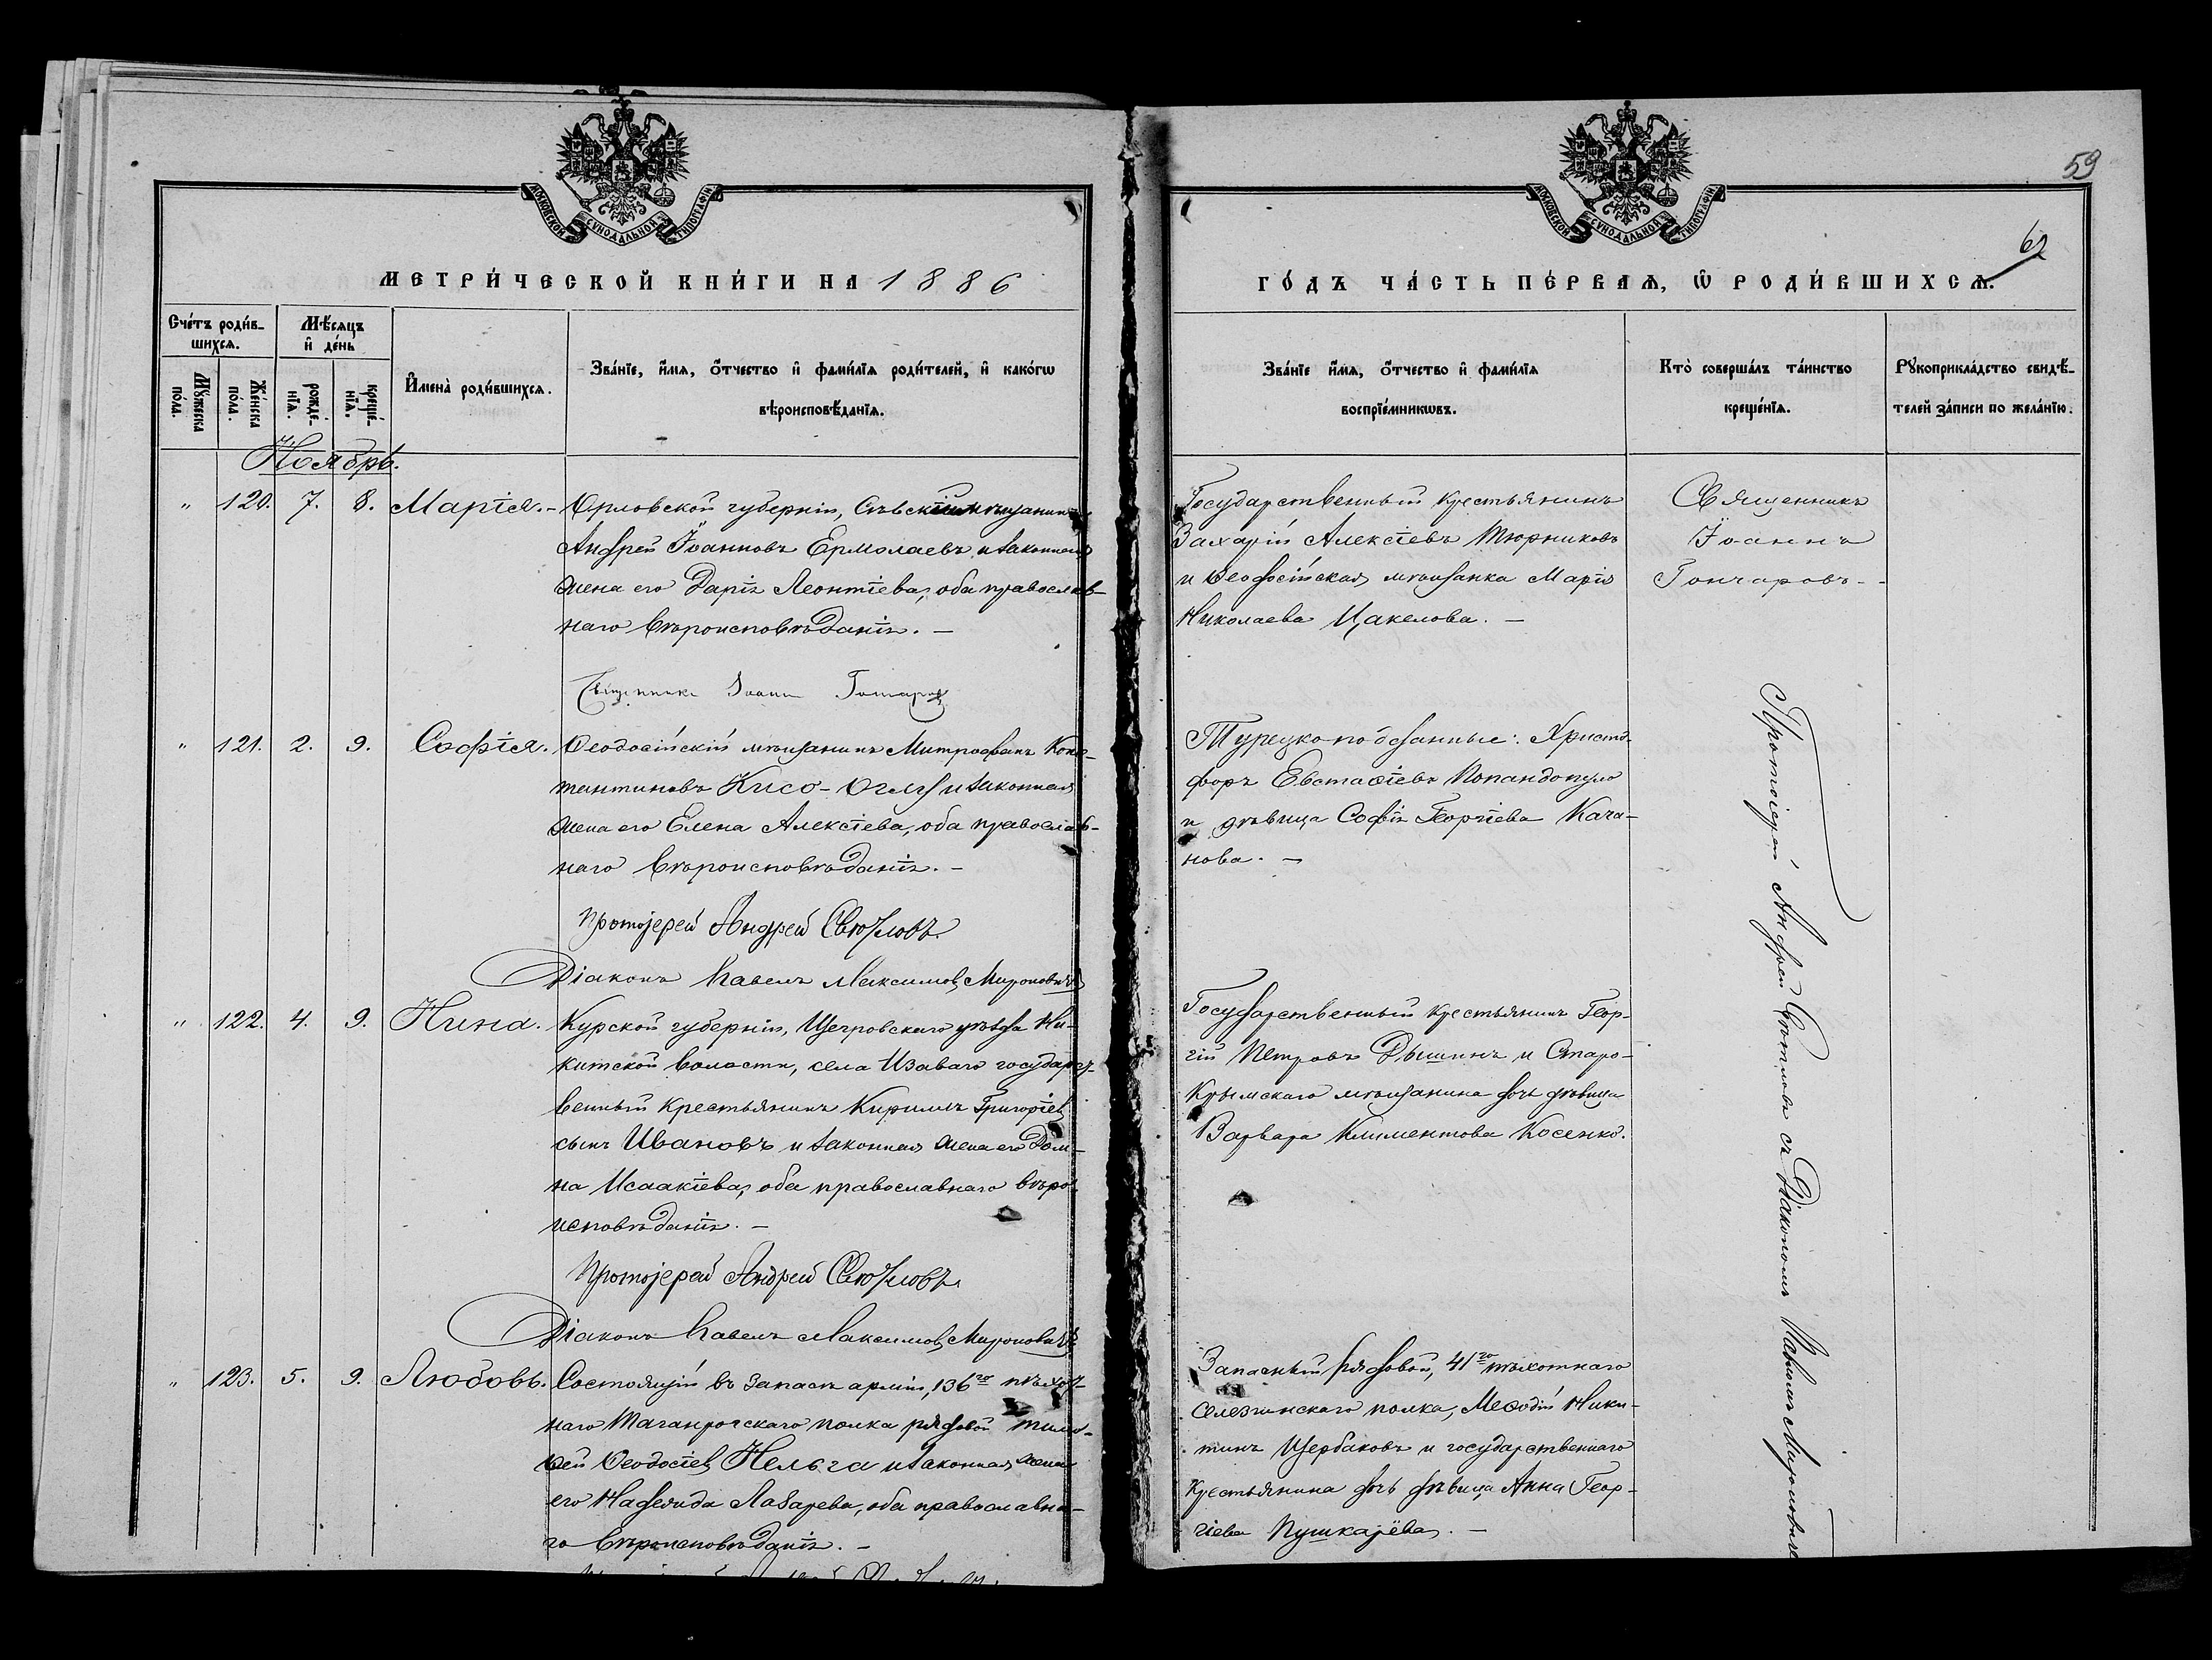 59
62
МОСКОВСКОЙ СУНОДАЛЬНОЙ ТИПОГРАФІИ
МОСКОВСКОЙ СУНОДАЛЬНОЙ ТИПОГРАФІИ
МЕТРИ́ЧЕСКОЙ КНИ́ГИ НА 1886
ГО́ДЪ ЧА́СТЬ ПЕ́РВАѦ, Ѿ РОДИ́ВШИХСѦ.
Сче́тъ роди́в-
шихсѧ.
Мꙋжеска по́ла.
Же́нска по́ла.
Мѣ́сѧцъ
и҆ де́нь
рожде́-
нїѧ.
креще́-
нїѧ.
И҆мена̀ роди́вшихсѧ.
Зва́нїе, и҆́мѧ, ѻ҆́тчество и҆ фами́лїѧ роди́телей, и҆ како́гѡ
вѣроисповѣ́данїѧ.
Зва́нїе и҆́мѧ, ѻ҆́тчество и҆ фами́лїѧ
воспрїе́мникѡвъ.
Кто̀ соверша́лъ та́инство
креще́нїѧ.
Рꙋкоприкла́дство свидѣ́-
телей за́писи по жела́нїю.
Ноябрь.
" 120. 7. 8. Марія. - Орловской губерніи, Сѣвскій мѣщанинъ
Андрей Іоанновъ Ермолаевъ и законная
жена его Дарія Леонтіева, оба православ-
наго вѣроисповѣданія. —
Священникъ Іоаннъ Гончаровъ
Государственный крестьянинъ
Захарій Алексіевъ Тюрниковъ
и Ѳеодосійская мѣщанка Марія
Николаева Цакелова. —
Священникъ
Іоаннъ
Гончаровъ. -
" 121. 2. 9. Софія. Ѳеодосійскій мѣщанинъ Митрофанъ Конс-
тантиновъ Кисо-Оглу и законная
жена его Елена Алексіева, оба православ-
наго вѣроисповѣданія. -
Протоіерей Андрей Свѣтловъ
Діаконъ Павелъ Максимовъ Мироновичъ
Турецкоподданные: Христо-
форъ Евстафіевъ Попандопуло
и дѣвица Софія Георгіева Кача-
нова. —
Протоіерей Андрей Свѣтловъ съ Діакономъ Павломъ Мироновичемъ
" 122. 4. 9. Нина. Курской губерніи, Щегровскаго уѣзда Ни-
китской волости, села государст-
венный крестьянинъ Кириллъ Григоріевъ
сынъ Ивановъ и законная жена его Дом-
на Исаакіева, оба православнаго вѣро-
исповѣданія. —
Протоіерей Андрей Свѣтловъ
Діаконъ Павелъ Максимовъ Мироновичъ
Государственный крестьянинъ Геор-
гій Петровъ Дышинъ и Старо-
Крымскаго мѣщанина дочь дѣвица
Варвара Климентова Косенко.
" 123. 5. 9. Любовь. Состоящій въ запасѣ арміи, 136го пѣхот-
наго Таганрогскаго полка рядовой Тимо-
ѳей Ѳеодосіевъ Нельга и законная жена
его Надежда Лазарева, оба православна-
го вѣроисповѣданія. -
Запасный рядовой, 41го пѣхотнаго
Селегинскаго полка, Меѳодій Ники-
тинъ Щербаковъ и государственнаго
крестьянина дочь дѣвица Анна Геор-
гіева Пушкарёва. —